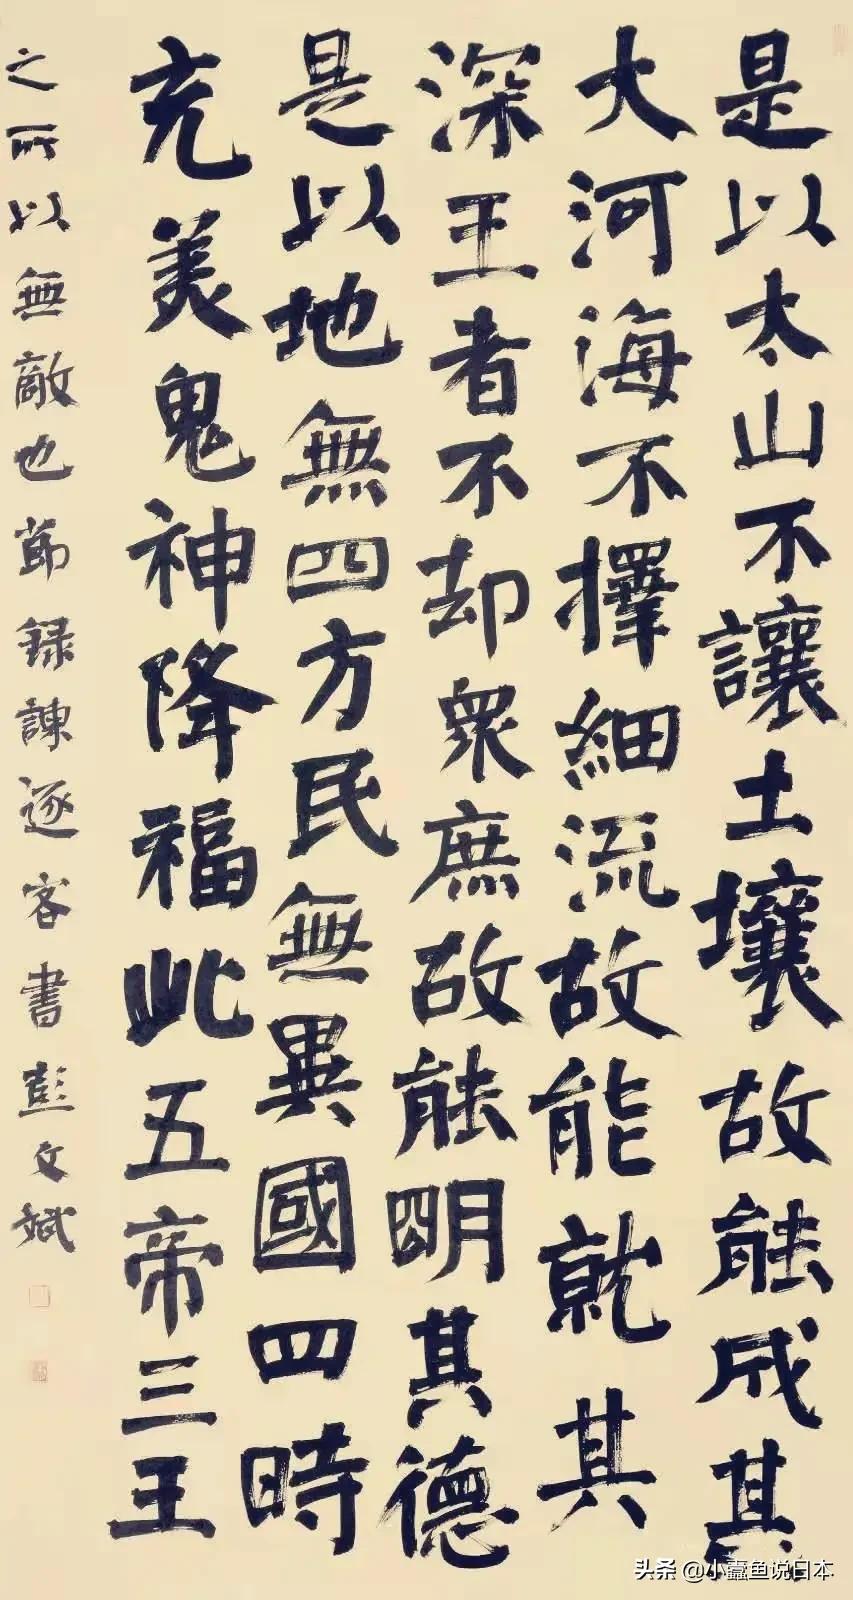 是以太山不讓土壤故能成其
大河海不擇細流故能就其
深王者不却衆庶故能明其德
是以地無四方民無異國四時
充美鬼神降福此五帝三王
之所以無敵也節録諫逐客書彭文斌
头条 @小蠹鱼说日本